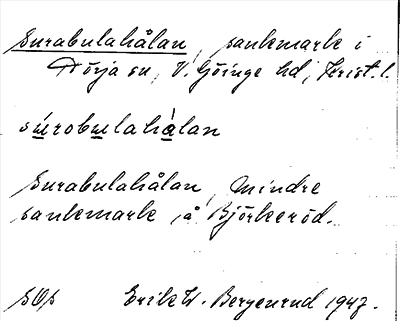 Surabulahålan, sankmark i
Dörja sn, V. Göinge hd, Krist. l.
súrobulahàlan
Surabulahålan, mindre
sankmark å Björkeröd.
SOS Erik W. Bergenrud 1947.